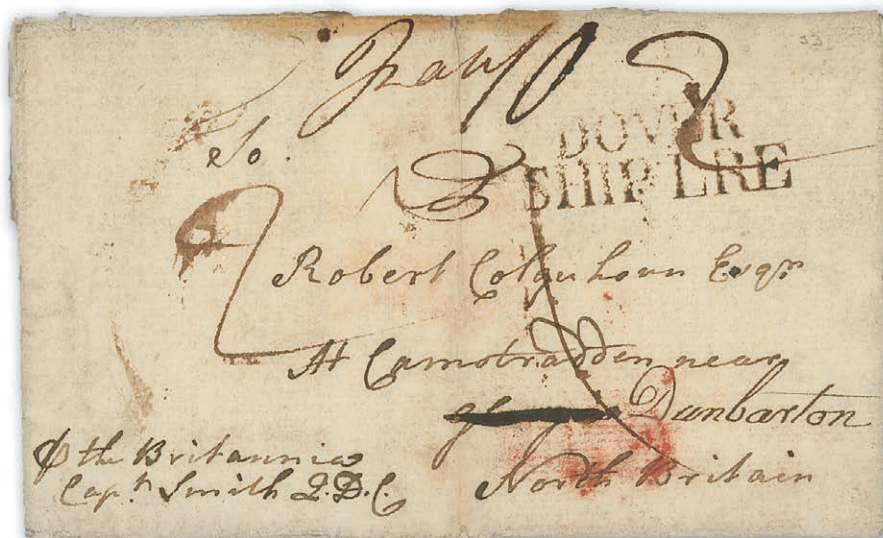 To
DOVER
SHIP LRE
Robert Colquhoun Esqr
At Camstradden near
Dunbarton
North Britain
⅌ the Britannia
Capt. Smith Q.D.C.